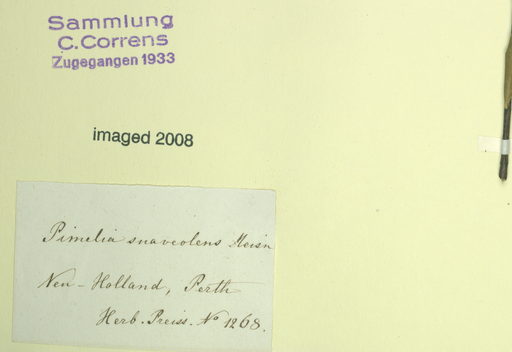 Sammlung
C. Correns
Zugegangen 1933
imaged 2008
Pimelia suaveolens Meisn
Neu-Holland, Perth
Herb. Preiss. No 1268.